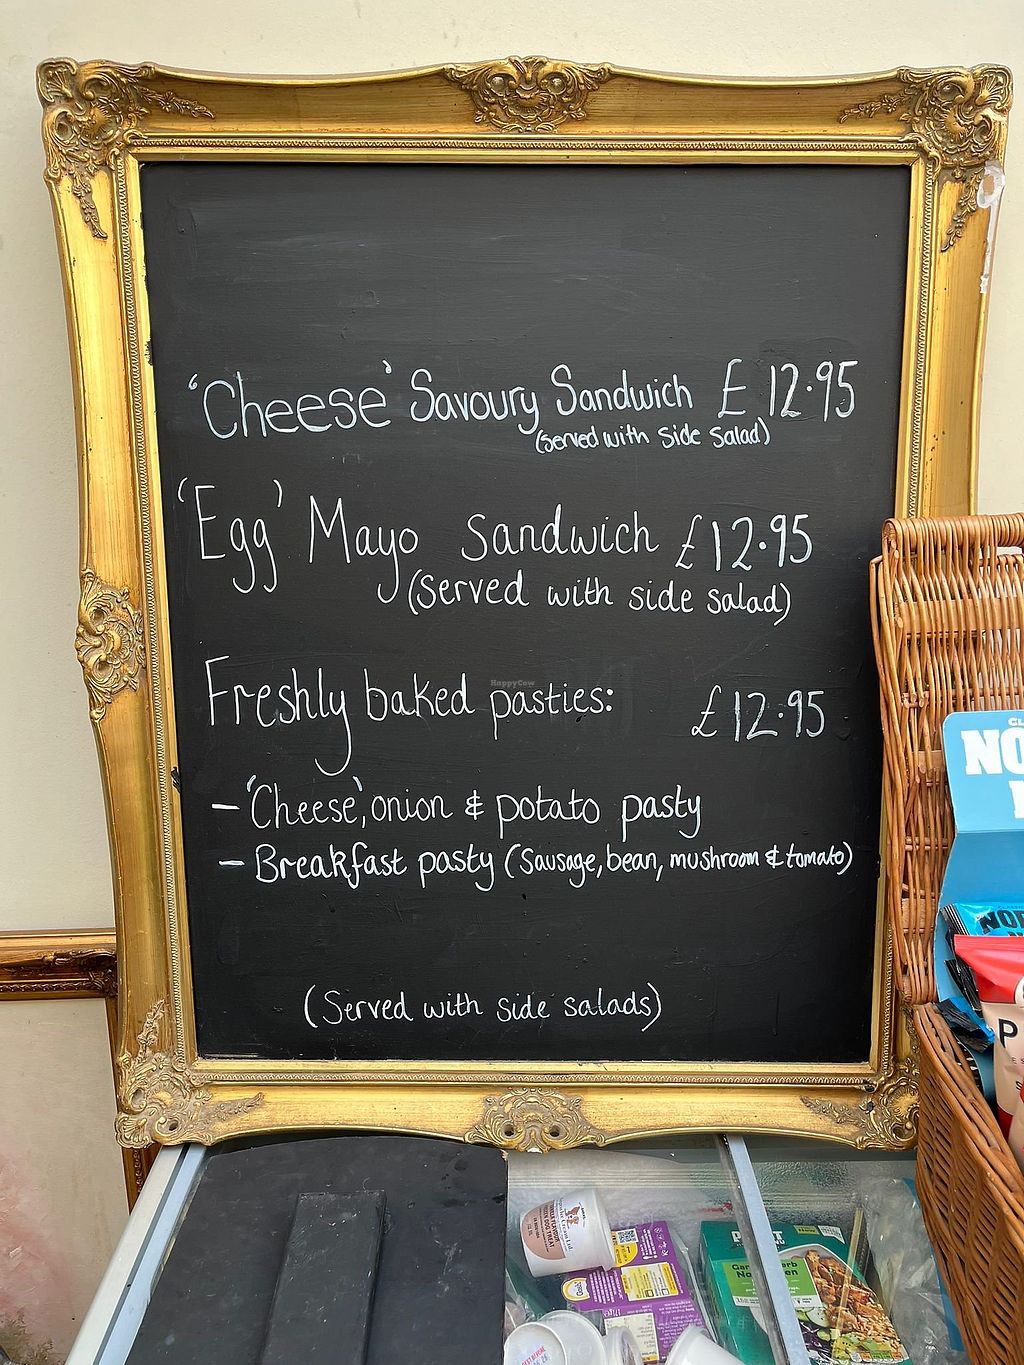 'Cheese' Savoury Sandwich £12.95
(served with side salad)
'Egg' Mayo sandwich £12.95
(served with side salad)
Freshly baked pasties: £12.95
HappyCow
- 'Cheese', onion & potato pasty
- Breakfast pasty (sausage, bean, mushroom & tomato)
(Served with side salads)
NO
NO
P